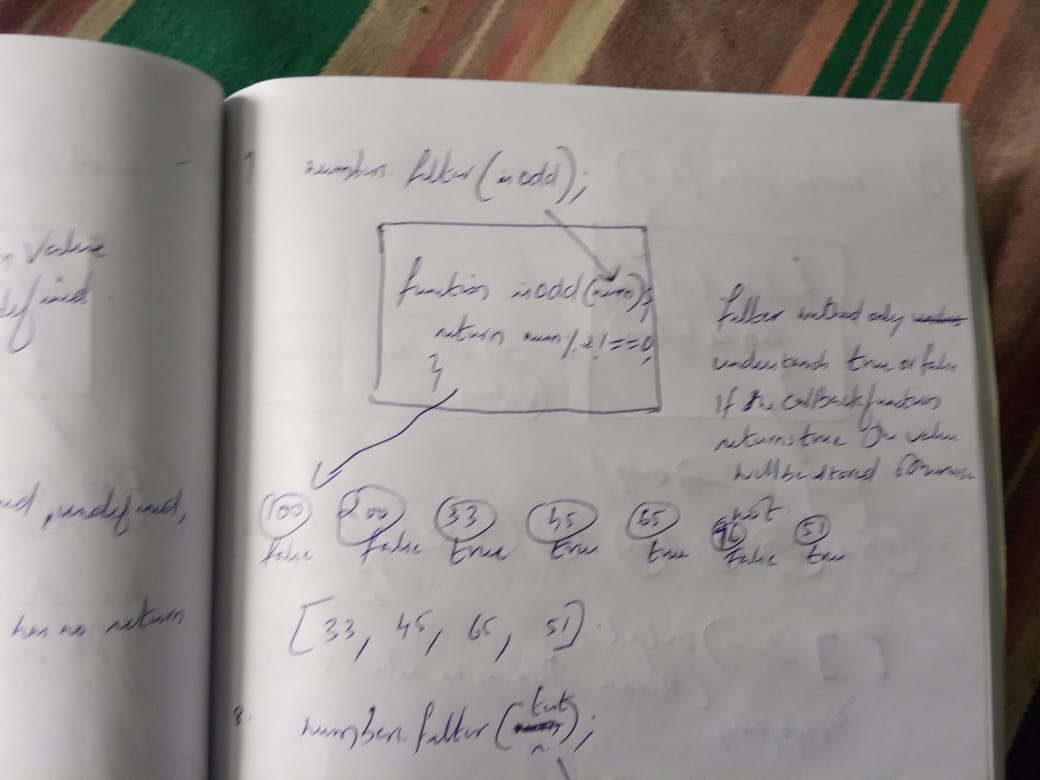 n Value
defined
ned, undefined,
has no return
7. numbers.filter(isodd);
function isodd(num){
return num%2!==0;
}
filter method only
understands true or false
If the callback function
returns true the value
will be stored otherwise
not.
100 200 33 45 65 96 51
false false true true true false true
[33, 45, 65, 51].
8. numbers.filter(
);